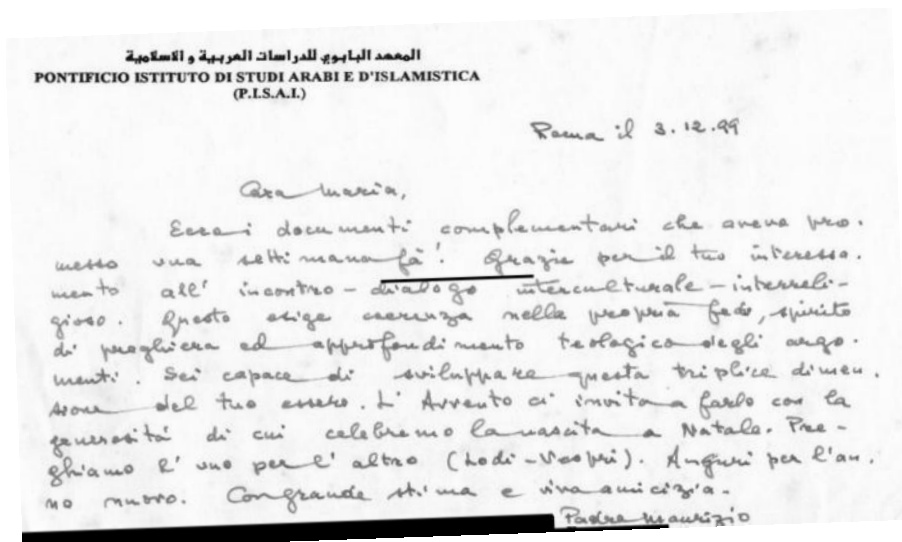 المعهد البابوي للدراسات العربية و الاسلامية
PONTIFICIO ISTITUTO DI STUDI ARABI E D'ISLAMISTICA
(P.I.S.A.I.)
Roma il 3.12.99
Cara Maria,
Eccoi documenti complementari che aveva pro.
messo una settimana fà! Grazie per il tuo interessa.
mento all' incontro - dialogo interculturale - interreli-
gioso. Questo esige coerenza nella propria fede, spirito
di preghiera ed approfondimento teologico degli argo.
menti. Sei capace di sviluppare questa triplice dimen.
sione del tuo essere. L' Avvento ci invita a farlo con la
generosità di cui celebremo la nascita a Natale. Pre-
ghiamo l' uno per l' altro (Lodi-Vespri). Auguri per l'an.
no nuovo. Con grande stima e viva amicizia.
Padre Maurizio